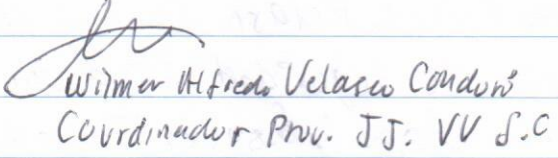 Wilmer Alfredo Velasco Condori
Coordinador Prov. JJ. VV S.C